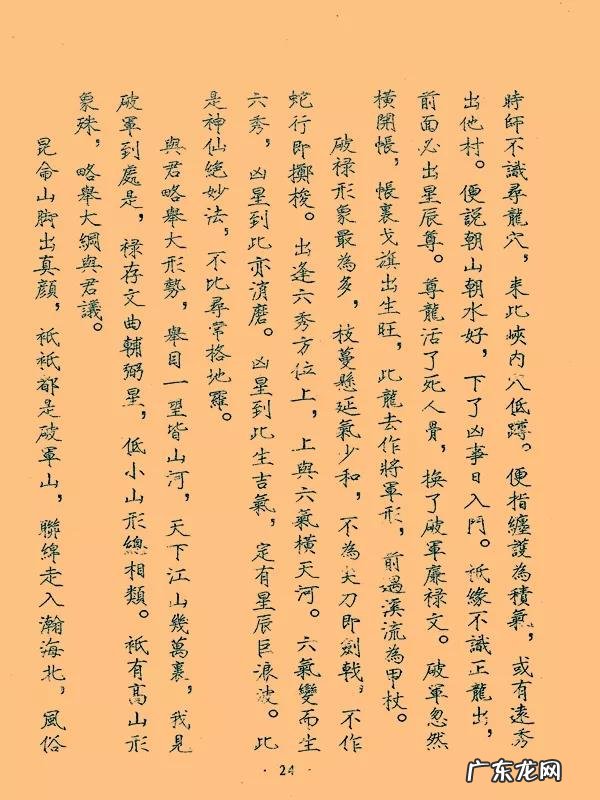 時師不識尋龍穴，來此峽內穴低蹲。便指纏護為積氣，或有遠秀
出他村。便說朝山朝水好，下了凶事日入門。祗緣不識正龍出，
前面必出星辰尊。尊龍活了死人骨，換了破軍廉祿文。破軍忽然
橫開帳，帳裏戈旗出生旺，此龍去作將軍形，前過溪流為甲杖。
破祿形象最為多，枝蔓懸延氣少和，不為尖刀即劍戟，不作
蛇行即擲梭。出逢六秀方位上，上與六氣橫天河。六氣變而生
六秀，凶星到此亦消磨。凶星到此生吉氣，定有星辰巨浪波。此
是神仙絕妙法，不比尋常格地羅。
與君略舉大形勢，舉目一望皆山河，天下江山幾萬裏，我見
破軍到處是，祿存文曲輔弼星，低小山形總相類。祗有高山形
象殊，略舉大綱與君議。
昆侖山脚出真顏，祗祗都是破軍山，聯綿走入瀚海北，風俗
· 24 ·
广东龙网